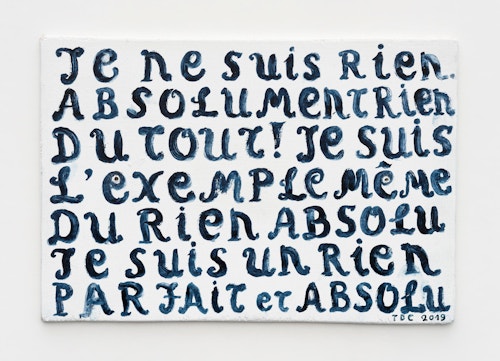 Je ne suis Rien.
ABSOLUMENT Rien
DU TOUT! Je suis
L'exemple même
DU Rien ABSOLU
Je suis un Rien
PARFAIT et ABSOLU
TDC 2019